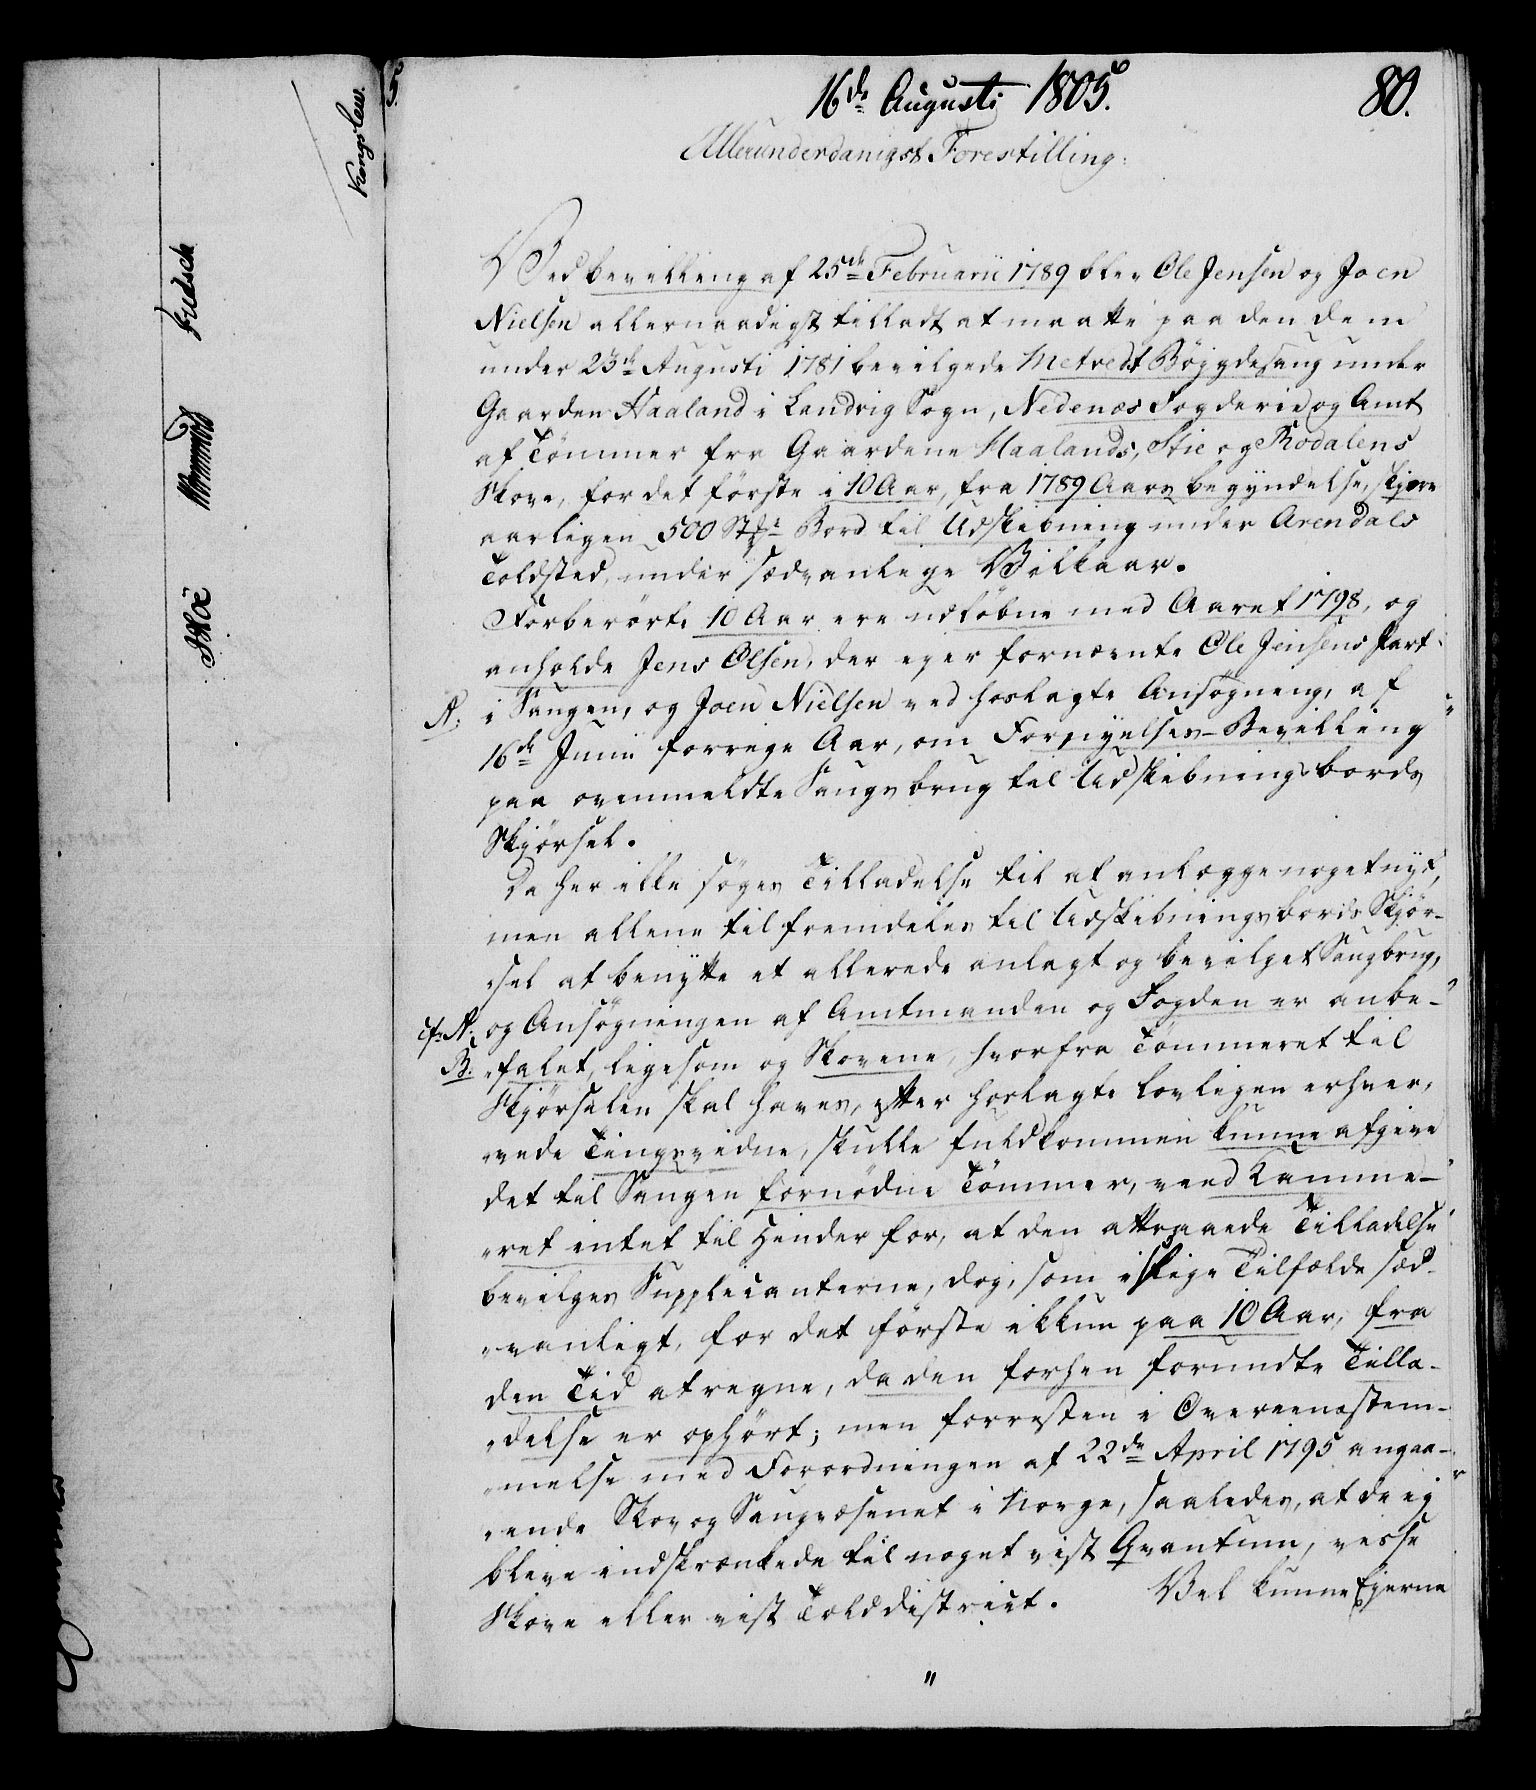 16de Augusti 1805.
80.
Allerunderdanigst Forestilling.
Ved bevilling af 25de Februarii 1789 blev Ole Jensen og Joen
Nielsen allernaadigst tilladt at maatte paa den dem
under 23de Augusti 1781 bevilgede Metvedt Böygdesaug under
Gaarden Haaland i Landvig Sogn, Nedenæs Fogderie og Amt
af Tömmer fra Gaardene Haalands, Stie og Rodalens
Skove, for det förste i 10 Aar, fra 1789 Aars begyndelse, skjære
aarligen 500 St Bord til Udskibning under Arendals
Toldsted, under sædvanlige Vilkaar.
Forberörte 10 Aar ere udlöbne med Aaret 1798, og
anholde Jens Olsen, der ejer fornævnte Ole Jensens Part
A. i Saugen, og Joen Nielsen ved hoslagte Ansögning, af
16de Junii forrige Aar, om Fornyelses-Bevilling
paa ovenmeldte Saugs brug til Udskibningsbords
Skjörsel.
Da her ikke söges Tilladelse til at anlægge noget nyt,
men allene til fremdeles til Udskibningsbords Skjör-
sel at benytte et allerede anlagt og bevilget Saugbrug,
cfr A. og Ansögningen af Amtmanden og Fogden er anbe-
B. falet, ligesom og Skovene, hvorfra Tömmeret til
Skjörselen skal haves, efter hoslagte lovligen erhver-
vede Tingsvidne, skulle fuldkommen kunne afgive
det til Saugen fornödne Tömmer, veed Kamme-
ret intet til Hinder for, at den attraaede Tilladelse
bevilges Supplicanterne, dog, som i slige Tilfælde sæd-
vanligt, for det förste ikkun paa 10 Aar, fra
den Tid at regne, da den forhen forundte Tilla-
delse er ophört; men forresten i Overeenstem-
melse med Forordningen af 22de April 1795 angaa-
ende Skov og Saugvæsenet i Norge, saaledes, at de ej
blive indskrænkede til noget vist Qvantum, visse
Skove eller vist Tolddistrict. Vel kunne Ejerne
"
Kongslew.
Fridsch
Sköe